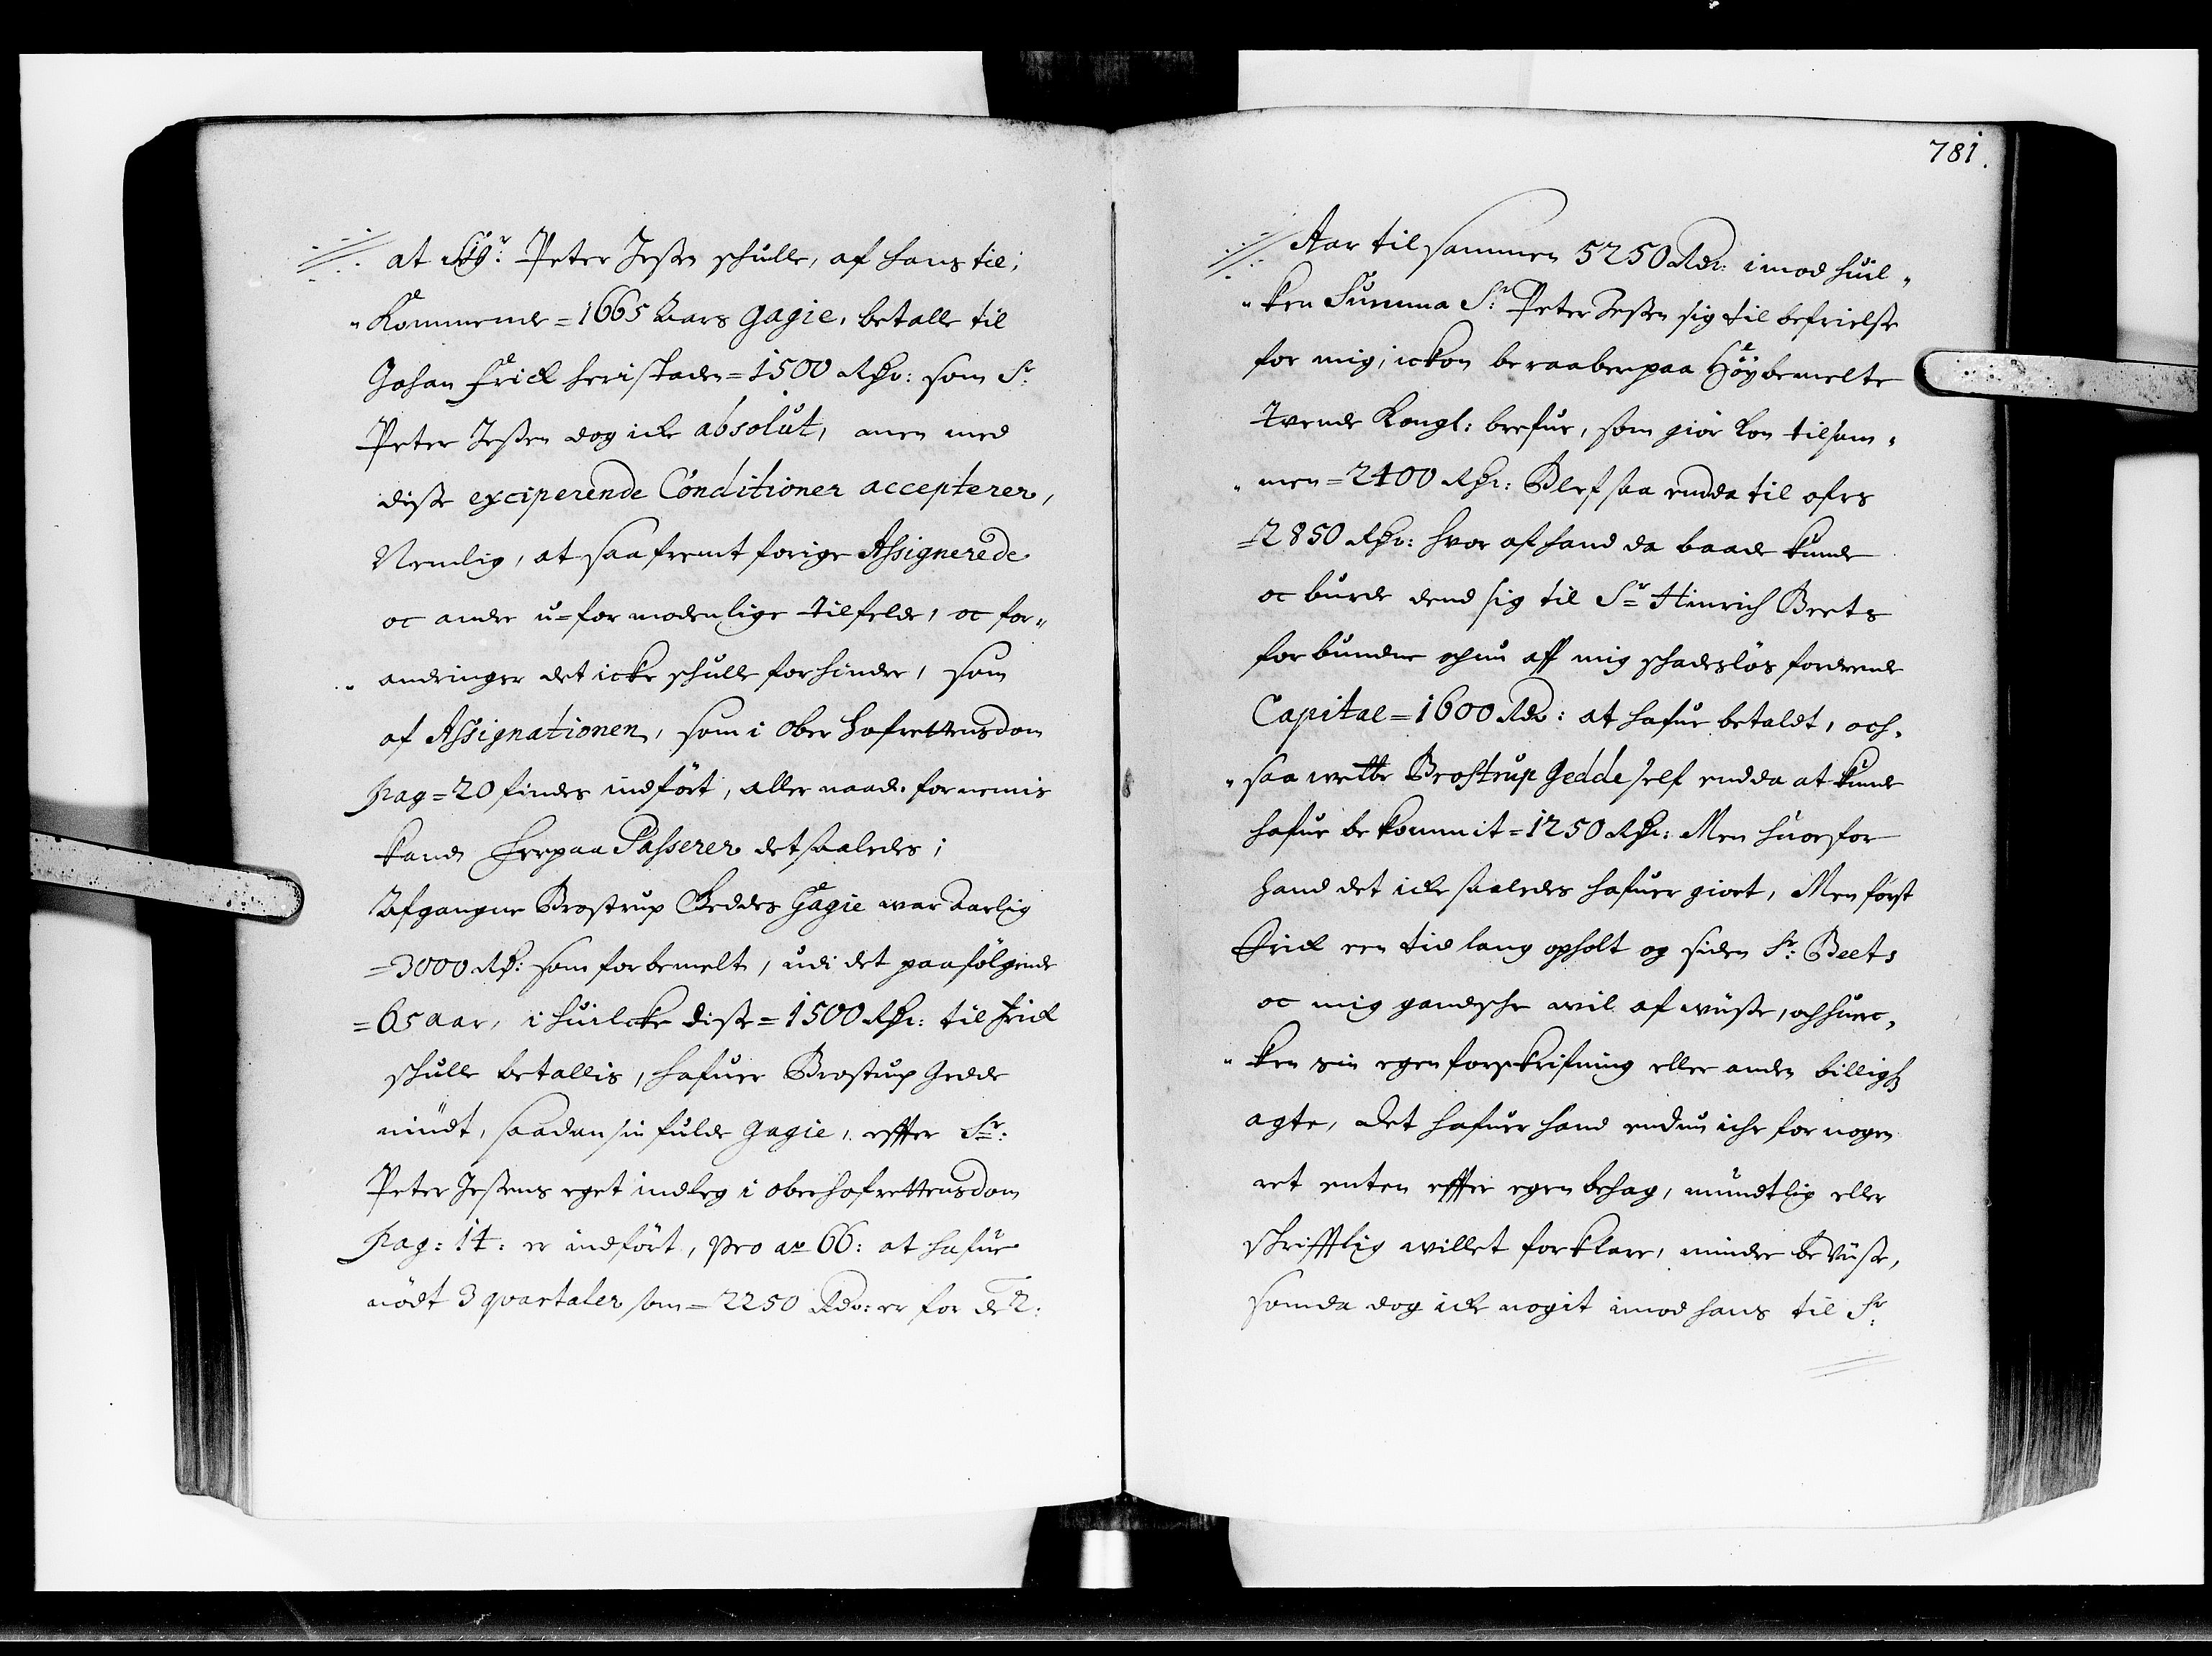 at Sigr: Peter Jessen schulle, af hans til,
"Kommende = 1665 Aars gagie, betalle til
Johan Frick heri staden = 1500 Rdr: som Sr:
Peter Jessen dog icke absolut, men med
disse exciperende Conditioner accepterer,
Nemlig, at saafremt forige Assignerede
oc andre u=formodenlige tilfelde, oc for"
" andringer det icke schulle forhindre, som
af Assignationen, som i Ober hofrettens dom
pag = 20 findes indført, aller naad. fornemis
kand herpaa Passerer det saaledes;
Afgangne Brostrup Geddes Gagie war Aarlig
= 3000 Rdr: som forbemelt, udi det paafølgende
= 65 aar, i huilcke disse = 1500 Rdr: til Frick
schulle betallis, hafuer Brostrup Gedde
nündt, saadan sin fulde gagie, effter Sr:
Peter Jessens eget indleg i oberhofrettens dom
pag: 14: er indført, Pro ao 66: at hafue
nödt 3 quartaler som = 2250 Rdr: er for de 2:
781.
Aar tilsammen 5250 Rdr: imod huil"
"ken Summa Sr: Peter Jessen sig til befrielse
for mig, ickon beraaber paa Höybemelte
Tvende Kongl: brefue, som giör kon tilsam"
" men = 2400 Rdr: Blef saa endda til ofers
= 2850 Rdr: hvor af hand da baade kunde
oc burde dend sig til Sr Hinrich Beets
forbundne och nu aff mig schadesløs fordrende
Capital = 1600 Rdr: at hafue betaldt, och"
" saa wette Brostrup Gedde self endda at kunde
hafue bekommit = 1250 Rdr: Men huorfor
hand det icke saaledes hafuer giort, Men først
Frick een tid lang opholt og siden Sr: Beets
oc mig gandsche wil af wüsse, och huerc"
" ken sin egen forskrifning eller anden billigh
agte, Det hafuer hand endnu iche for nogen
ret enten effter egen behag, mundtlig eller
schrifftlig willet forklare, mindre bewüsse,
som da dog icke nogit imod hans til Sr: